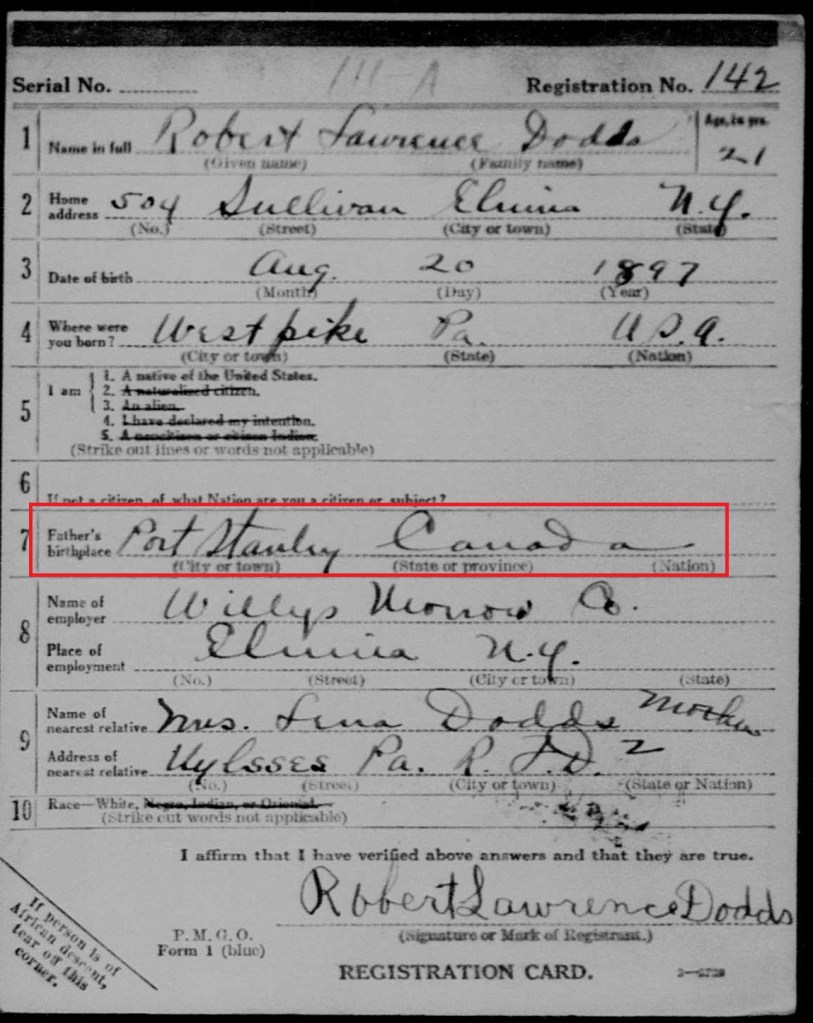 111-A
Serial No. Registration No. 142
1 Name in full Robert Lawrence Dodds Age, in yrs. 21
(Given name) (Family name)
2 Home address 504 Sullivan Elmira N.Y.
(No.) (Street) (City or town) (State)
3 Date of birth Aug. 20 1897
(Month) (Day) (Year)
4 Where were you born? Westpike Pa. U.S.A.
(City or town) (State) (Nation)
5 I am 1. A native of the United States.
2. A naturalized citizen.
3. An alien.
4. I have declared my intention.
5. A noncitizen or citizen Indian.
(Strike out lines or words not applicable)
6 If not a citizen, of what Nation are you a citizen or subject?
7 Father's birthplace Port Stanley Canada
(City or town) (State or province) (Nation)
8 Name of employer Willys Morrow Co.
Place of employment Elmira N.Y.
(No.) (Street) (City or town) (State)
9 Name of nearest relative Mrs. Lena Dodds Mother
Address of nearest relative Uylsses Pa. R.F.D. 2
(No.) (Street) (City or town) (State or Nation)
10 Race—White, Negro, Indian, or Oriental.
(Strike out words not applicable)
I affirm that I have verified above answers and that they are true.
Robert Lawrence Dodds
(Signature or Mark of Registrant.)
P.M.G.O.
Form 1 (blue)
REGISTRATION CARD.
If person is of
African descent,
tear off this
corner.